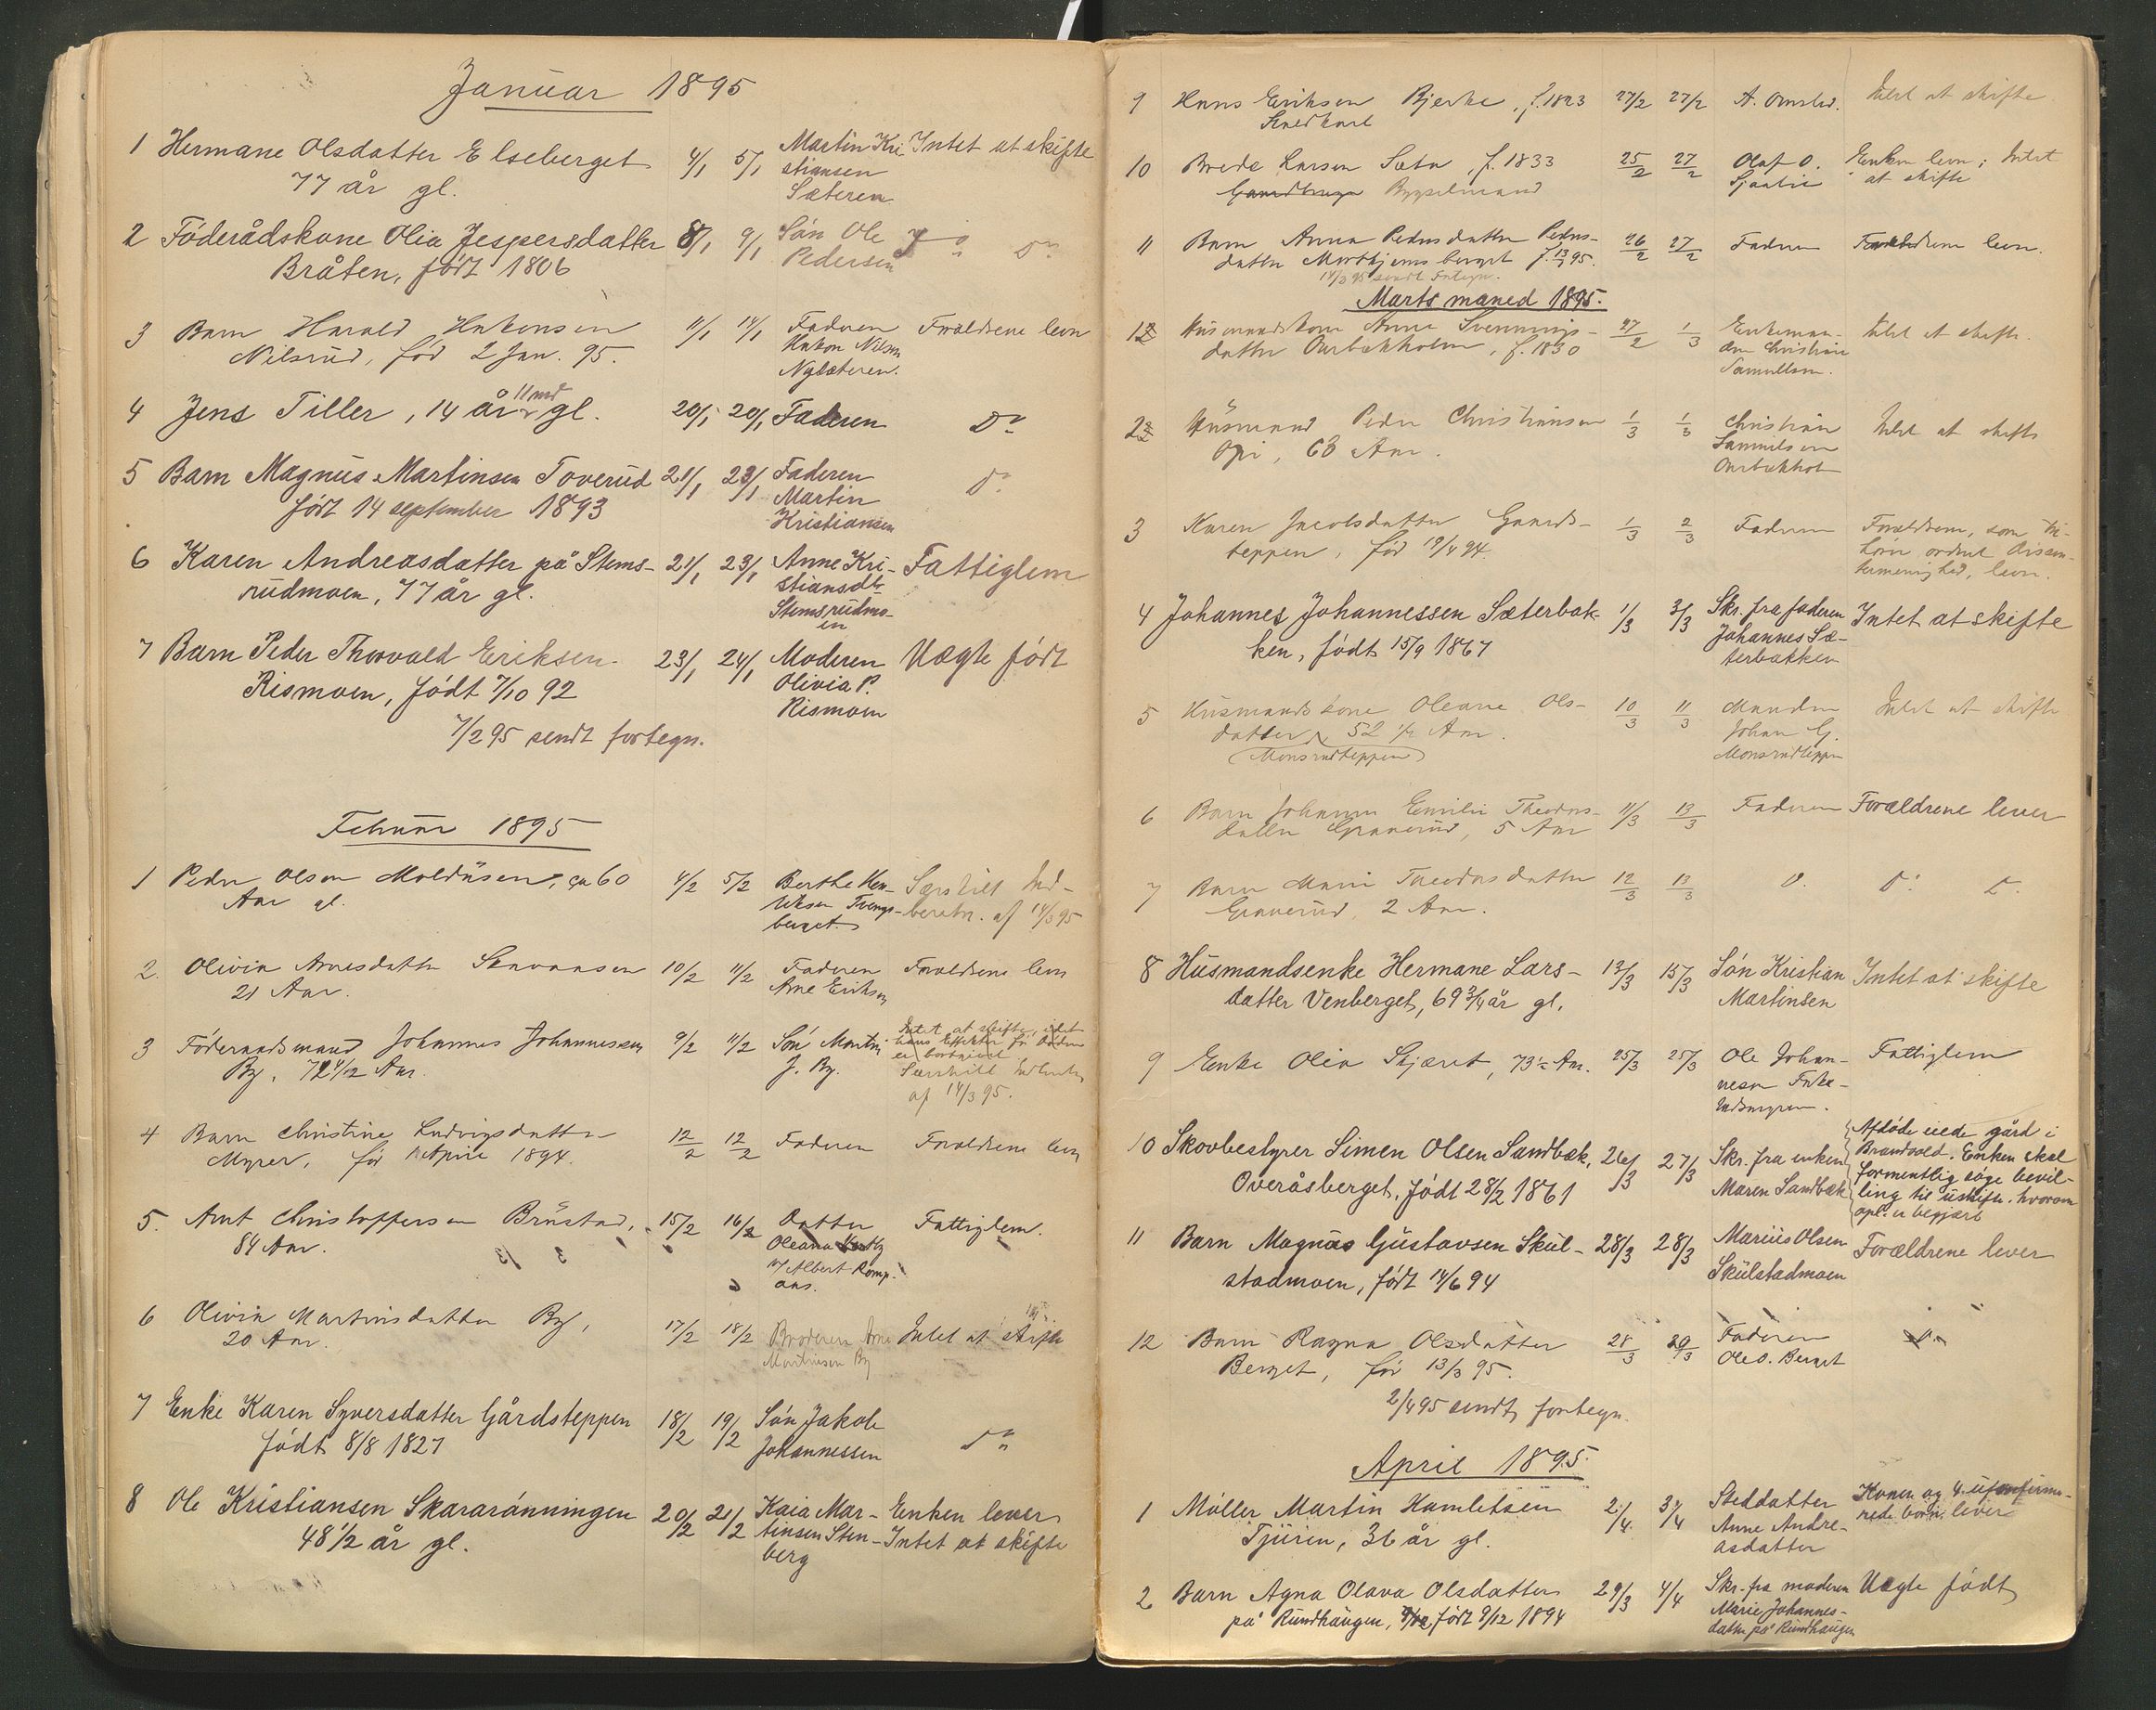 Januar 1895
1 Hermane Olsdatter Elseberget 4/1 5/1 Martin Kri- Intet at skifte
77 år gl. stiansen
Sæteren
2 Föderådskone Olia Jespersdatter 8/1 9/1 Sön Ole Do
Bråten, födt 1806 Pedersen
3 Barn Harald Hakonsen 11/1 14/1 Faderen Forældrene lever
Nilsrud, fød 2 Jan. 95. Hakon Nilsen
Nysæteren.
4 Jens Tiller, 14 år 11 md gl. 20/1 20/1 Faderen Do
5 Barn Magnus Martinsen Toverud 21/1 23/1 Faderen Do
födt 14 september 1893 Martin
Kristiansen
6 Karen Andreasdatter på Stems- 21/1 23/1 Anne Kri- Fattiglem
rudmoen, 77 år gl. stiansdtr
Stemsrudmo-
en
7 Barn Peder Thorvald Eriksen 23/1 24/1 Moderen Uægte födt
Rismoen, födt 7/10 92 Olivia P.
Rismoen
7/2 95 sendt fortegn.
Februar 1895
1 Peder Olsen Moldusen, ca 60 4/2 5/2 Berthe Hen- Særskilt Ind-
Aar gl. riksen Tvengs- beretn. af 14/3 95
berget.
2. Olivia Arnesdatter Skavaasen 10/2 11/2 Faderen Forældrene lever
21 Aar. Arne Eriksen
3 Föderaadsmand Johannes Johannessen 9/2 11/2 Sön Martin Intet at skifte, idet
By, 72 1/2 Aar. J. By. hans Effekter
er bortgivet.
Særskilt Indberetn.
af 14/3 95.
4 Barn Christine Ludvigsdatter 12/2 12/2 Faderen Forældrene lever
Myrer, fød April 1894.
5. Amt Christoffersen Brustad, 15/2 16/2 Datter Fattiglem.
84 Aar. Oleana
Albert Romp.
aas.
6 Olivia Martinsdatter By, 17/2 18/2 Broderen Arne Intet at skifte
20 Aar. Martinsen By
7 Enke Karen Syversdatter Gårdsteppen 18/2 19/2 Sön Jakob Do
födt 8/8 1827 Johannessen
8 Ole Kristiansen Skararönningen 20/2 21/2 Kaia Mar- Enken lever
48 1/2 år gl. tinsen Sten- Intet at skifte
berg
9 Hans Eriksen Bjerke, f. 1823 27/2 27/2 A. Omsted. Intet at skifte
10 Brede Larsen Sætra, f. 1833 25/2 27/2 Olaf O. Enken lever; Intet
Bygselmand Sjaatil at skifte
11 Barn Anna Pedersdatter Peders- 26/2 27/2 Faderen Forældrene lever.
datter Morthjemsberget f. 13/2 95.
14/3 95 sendt Fortegn.
Marts maned 1895.
1 Husmandskone Anne Svennings- 27/2 1/3 Enkeman- Intet at skifte.
datter Ourbækholm, f. 1830 den Christian
Samuelsen.
2 Husmand Peder Christiansen 1/3 1/3 Christian Intet at skifte
Opi, 63 Aar. Samuelsen
Ourbækholm
3 Karen Jacobsdatter Gaards- 1/3 2/3 Faderen Forældrene, som til-
teppen, fød 19/4 94 hører ordnet Dissen-
termenighed, lever.
4 Johannes Johannessen Sæterbak- 1/3 3/3 Skr. fra faderen Intet at skifte
ken, födt 15/9 1867 Johannes Sæ-
terbakken
5 Husmandskone Oleane Ols- 10/3 11/3 Manden Intet at skifte
datter 52 1/2 Aar. Johan G.
Monsrudteppen Monsrudteppen
6 Barn Johanne Emilie Theodors- 11/3 13/3 Faderen Forældrene lever
datter Graverud, 5 Aar
7 Barn Marie Theodorsdatter 12/3 13/3 D. D. D.
Graverud, 2 Aar.
8 Husmandsenke Hermane Lars- 13/3 15/3 Sön Kristian Intet at skifte
datter Venberget, 69 3/4 år gl. Martinsen
9 Enke Olea Skjæret, 73 1/2 Aar. 25/3 25/3 Ole Johan- Fattiglem
nesen
10 Skovbestyrer Simen Olsen Sandbæk, 26/3 27/3 Skr. fra enken Afdöde eiede gård i
Overåsberget, födt 28/2 1861 Maren Sandbæk Brandvold. Enken skal
formentlig söge bevil-
ling til uskifte, hvorom
opl. er begjært
11 Barn Magnus Gustavsen Skul- 28/3 28/3 Marius Olsen Forældrene lever
stadmoen, födt 14/6 94 Skulstadmoen
12 Barn Ragna Olsdatter 28/3 29/3 Faderen D.
Berget, fød 13/3 95. Ole O. Berget
2/4 95 sendt fortegn.
April 1895.
1 Möller Martin Hamletsen 2/4 3/4 Steddatter Konen og 4 ukonfirme-
Tjuren, 36 år gl. Anne Andre- rede börn lever
asdatter
2 Barn Agna Olava Olsdatter 29/3 4/4 Skr. fra moderen Uægte födt
på Rundhaugen, födt 9/12 1894 Marie Johannes-
datter på Rundhaugen